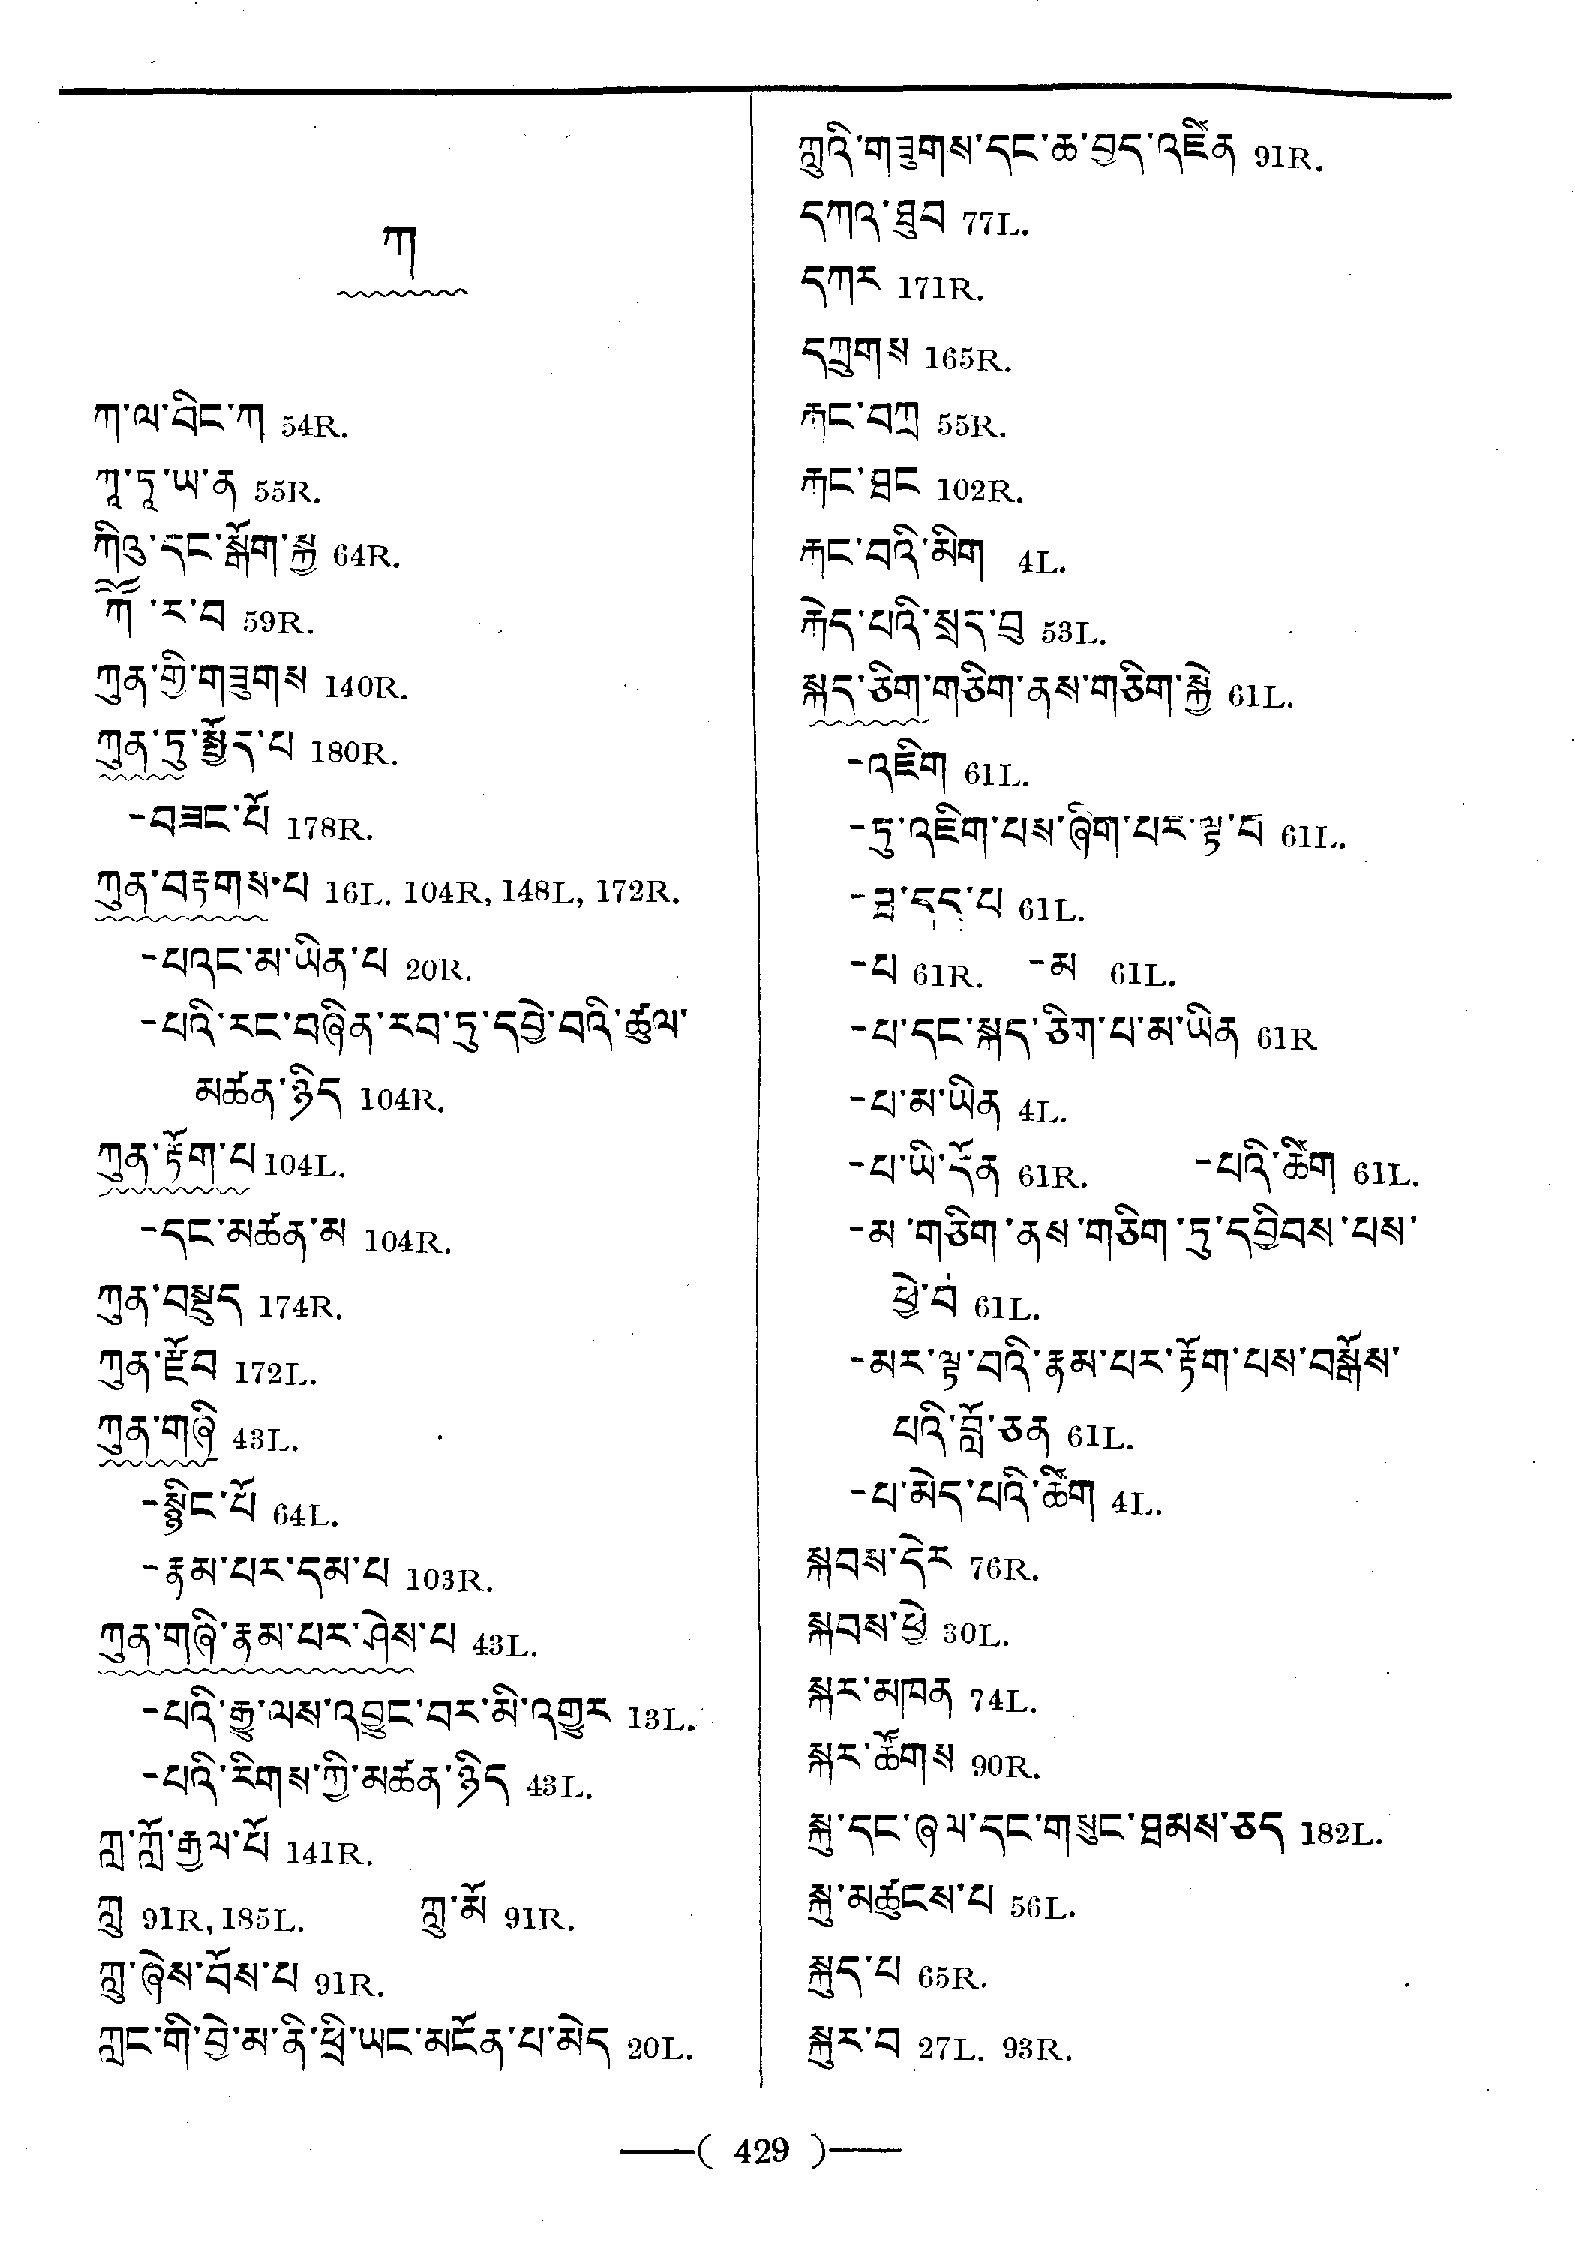 ཀ
ཀ་ལ་བིང་ཀ 54R.
ཀཱུ་ཏཱུ་ཡ་ན 55R.
ཀིའུ་དང་སྒོག་སྐྱ 64R.
ཀོ་ར་བ 59R.
ཀུན་གྱི་གཟུགས 140R.
ཀུན་ཏུ་སྤྱོད་པ 180R.
-བཟང་པོ 178R.
ཀུན་བརྟགས་པ 16L. 104R, 148L, 172R.
-པའང་མ་ཡིན་པ 20R.
-པའི་རང་བཞིན་རབ་ཏུ་དབྱེ་བའི་ཚུལ་
མཚན་ཉིད 104R.
ཀུན་རྟོག་པ 104L.
-དང་མཚན་མ 104R.
ཀུན་བསྡུད 174R.
ཀུན་རྫོབ 172L.
ཀུན་གཞི 43L.
-སྙིང་པོ 64L.
-རྣམ་པར་དམ་པ 103R.
ཀུན་གཞི་རྣམ་པར་ཤེས་པ 43L.
-པའི་རྒྱུ་ལས་འབྱུང་བར་མི་འགྱུར 13L.
-པའི་རིགས་ཀྱི་མཚན་ཉིད 43L.
ཀླ་ཀློ་རྒྱལ་པོ 141R.
ཀླུ 91R, 185L. ཀླུ་མོ 91R.
ཀླུ་ཞེས་བོས་པ 91R.
ཀླུང་གི་བྱེ་མ་ནི་ཕྲི་ཡང་མངོན་པ་མེད 20L.
ཀླུའི་གཟུགས་དང་ཆ་བྱད་འཛིན 91R.
དཀའ་ཐུབ 77L.
དཀར 171R.
དཀྲུགས 165R.
རྐང་བཀྲ 55R.
རྐང་ཐང 102R.
རྐང་བའི་མིག 4L.
རྐེད་པའི་སྲད་བུ 53L.
སྐད་ཅིག་གཅིག་ནས་གཅིག་སྐྱེ 61L.
-འཇིག 61L.
-ཏུ་འཇིག་པས་ཞིག་པར་ལྟ་བ 61L.
-ཟླ་དང་པ 61L.
-པ 61R. -མ 61L.
-པ་དང་སྐད་ཅིག་པ་མ་ཡིན 61R
-པ་མ་ཡིན 4L.
-པ་ཡི་དོན 61R. -པའི་ཚིག 61L.
-མ་གཅིག་ནས་གཅིག་ཏུ་དབྱིབས་པས་
ཕྱེ་བ 61L.
-མར་ལྟ་བའི་རྣམ་པར་རྟོག་པས་བསྒོས་
པའི་བློ་ཅན 61L.
-པ་མེད་པའི་ཚིག 4L.
སྐབས་དེར 76R.
སྐབས་ཕྱེ 30L.
སྐར་མཁན 74L.
སྐར་ཚོགས 90R.
སྐུ་དང་ཞལ་དང་གསུང་ཐམས་ཅད 182L.
སྐུ་མཚུངས་པ 56L.
སྐུད་པ 65R.
སྐུར་བ 27L. 93R.
( 429 )